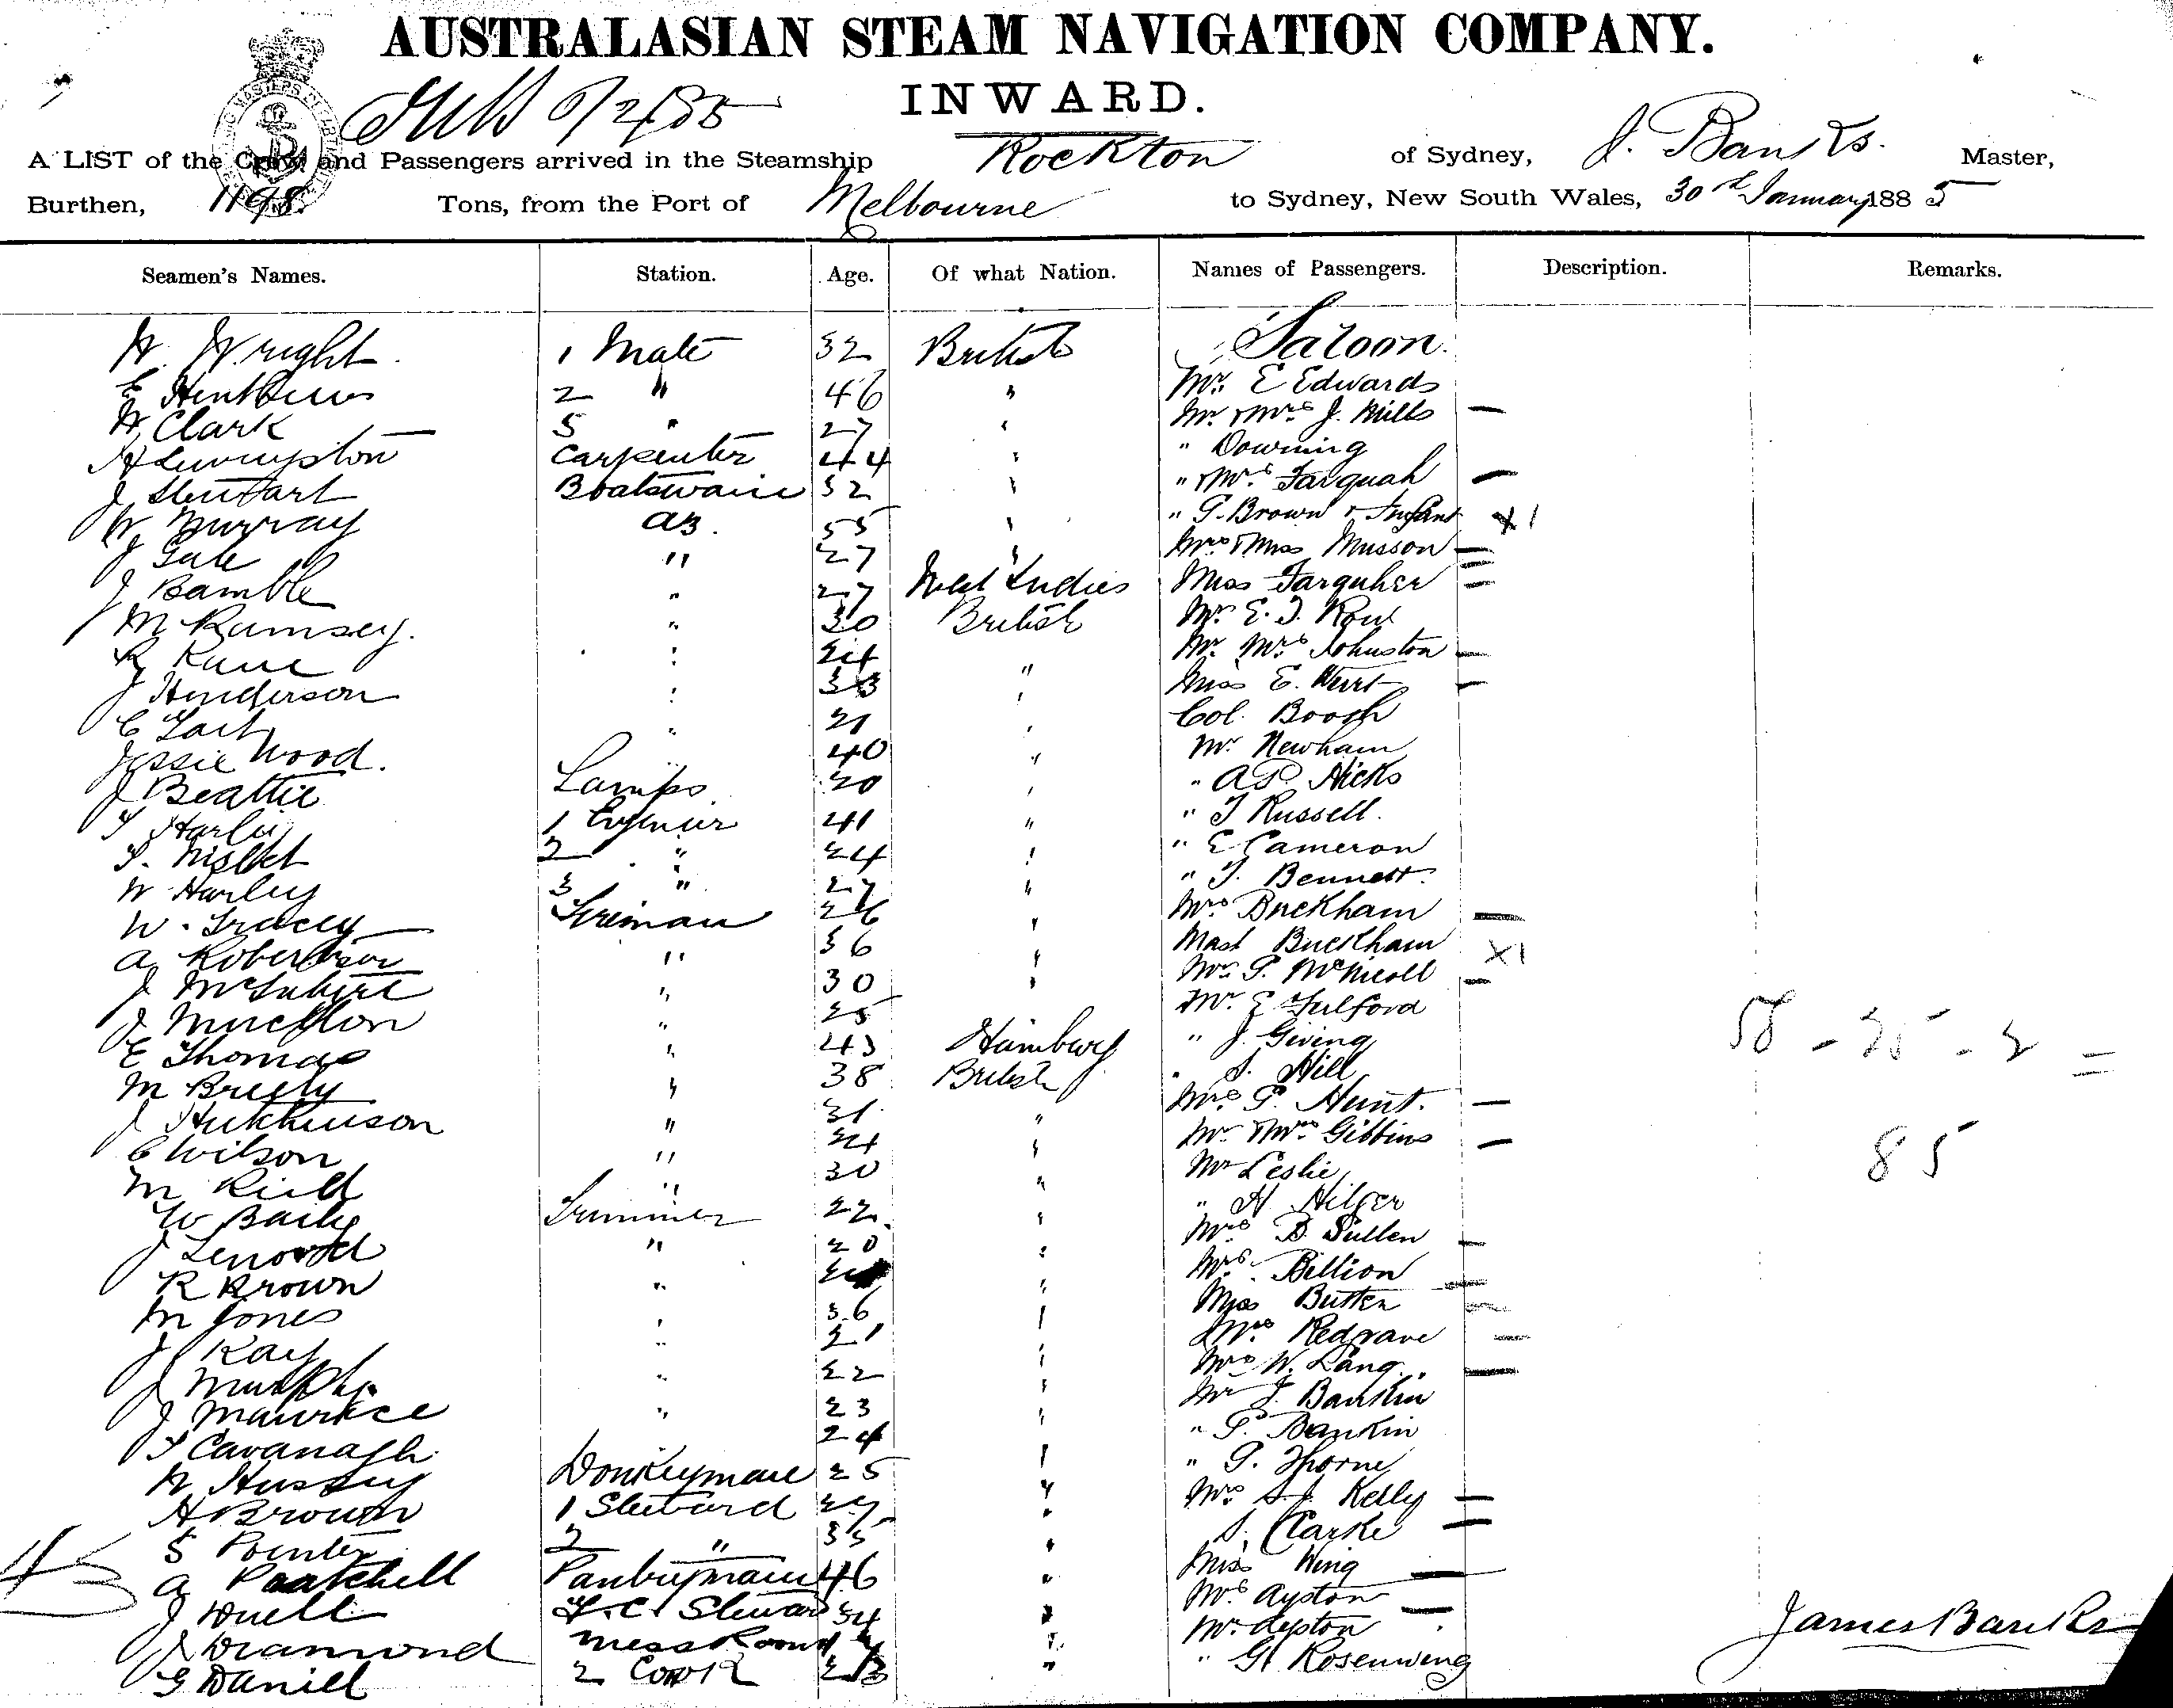 AUSTRALASIAN STEAM NAVIGATION COMPANY.
INWARD.
A LIST of the Crew and Passengers arrived in the Steamship Rockton of Sydney, J. Banks. Master,
Burthen, 1198 Tons, from the Port of Melbourne to Sydney, New South Wales, 30th January 1885
Seamen's Names. Station. Age. Of what Nation. Names of Passengers. Description. Remarks.
W. Wright 1 Mate 32 British Saloon.
E 2 " 46 " Mr. E Edwards
W Clark 3 " 27 " Mr. & Mrs J. Mills —
A Livingston Carpenter 44 " " Downing
J Stewart Boatswain 32 " " & Mrs Farquah —
W Murray AB. 55 " " G. Brown & Infant X1
J Gale " 27 " Mrs & Miss Musson —
J Bamble " 27 West Indies Miss Farquher =
M Ramsey. " 30 British Mr. E. J. Row
R Kane " 24 " Mr. Mrs Johnston —
J Henderson " 33 " Miss E. —
C " 21 " Col. Booth
Jessie Wood. " 40 " Mr. Newham
J Beattie Lamps 20 " " A.P. Hicks
T Harley 1 Engineer 41 " " T Russell.
T. Nisbet 2 " 24 " " E Cameron
W Harley 3 " 27 " " T. Bennett.
W. Tracey Fireman 26 " Mrs Buckham —
A Robertson " 36 " Mast Buckham X1
J McIntyre " 30 " Mrs. P. McNicoll —
J " 25 " Mr. E Fulford
E Thomas " 43 Hamburg " J. Giving
M " 38 British " S. Hill
J Hutchinson " 31 " Mrs G. Hunt. —
C Wilson " 24 " Mr. & Mrs Gibbins —
M Reid " 30 " Mr Leslie
W Baily Trimmer 22 " " H Hilger
J " 20 " Mrs D Sullen —
R Brown " " Mrs. Billion —
M Jones " 36 " Miss Butten —
J Kay " 21 " Mrs Redgrave —
J Murphy " 22 " Mrs W. Lang —
J Maurice " 23 " Mr J. Bankin
T Cavanagh " 24 " " G. Bankin
W Hussey Donkeyman 25 " " G. Thorne
H Brown 1 Steward 27 " Mrs Kelly —
S Pointer 2 " 35 " S. Clarke —
A Patchell Pantryman 46 " Miss Wing —
J Duell F. C. Steward 34 " Mrs Ayston —
J Dramond Mess Room " Mr. Ayston
G Daniell 2 Cook 23 " " G Rosenweng
58 - 25 - 2 =
85
43
James Banks